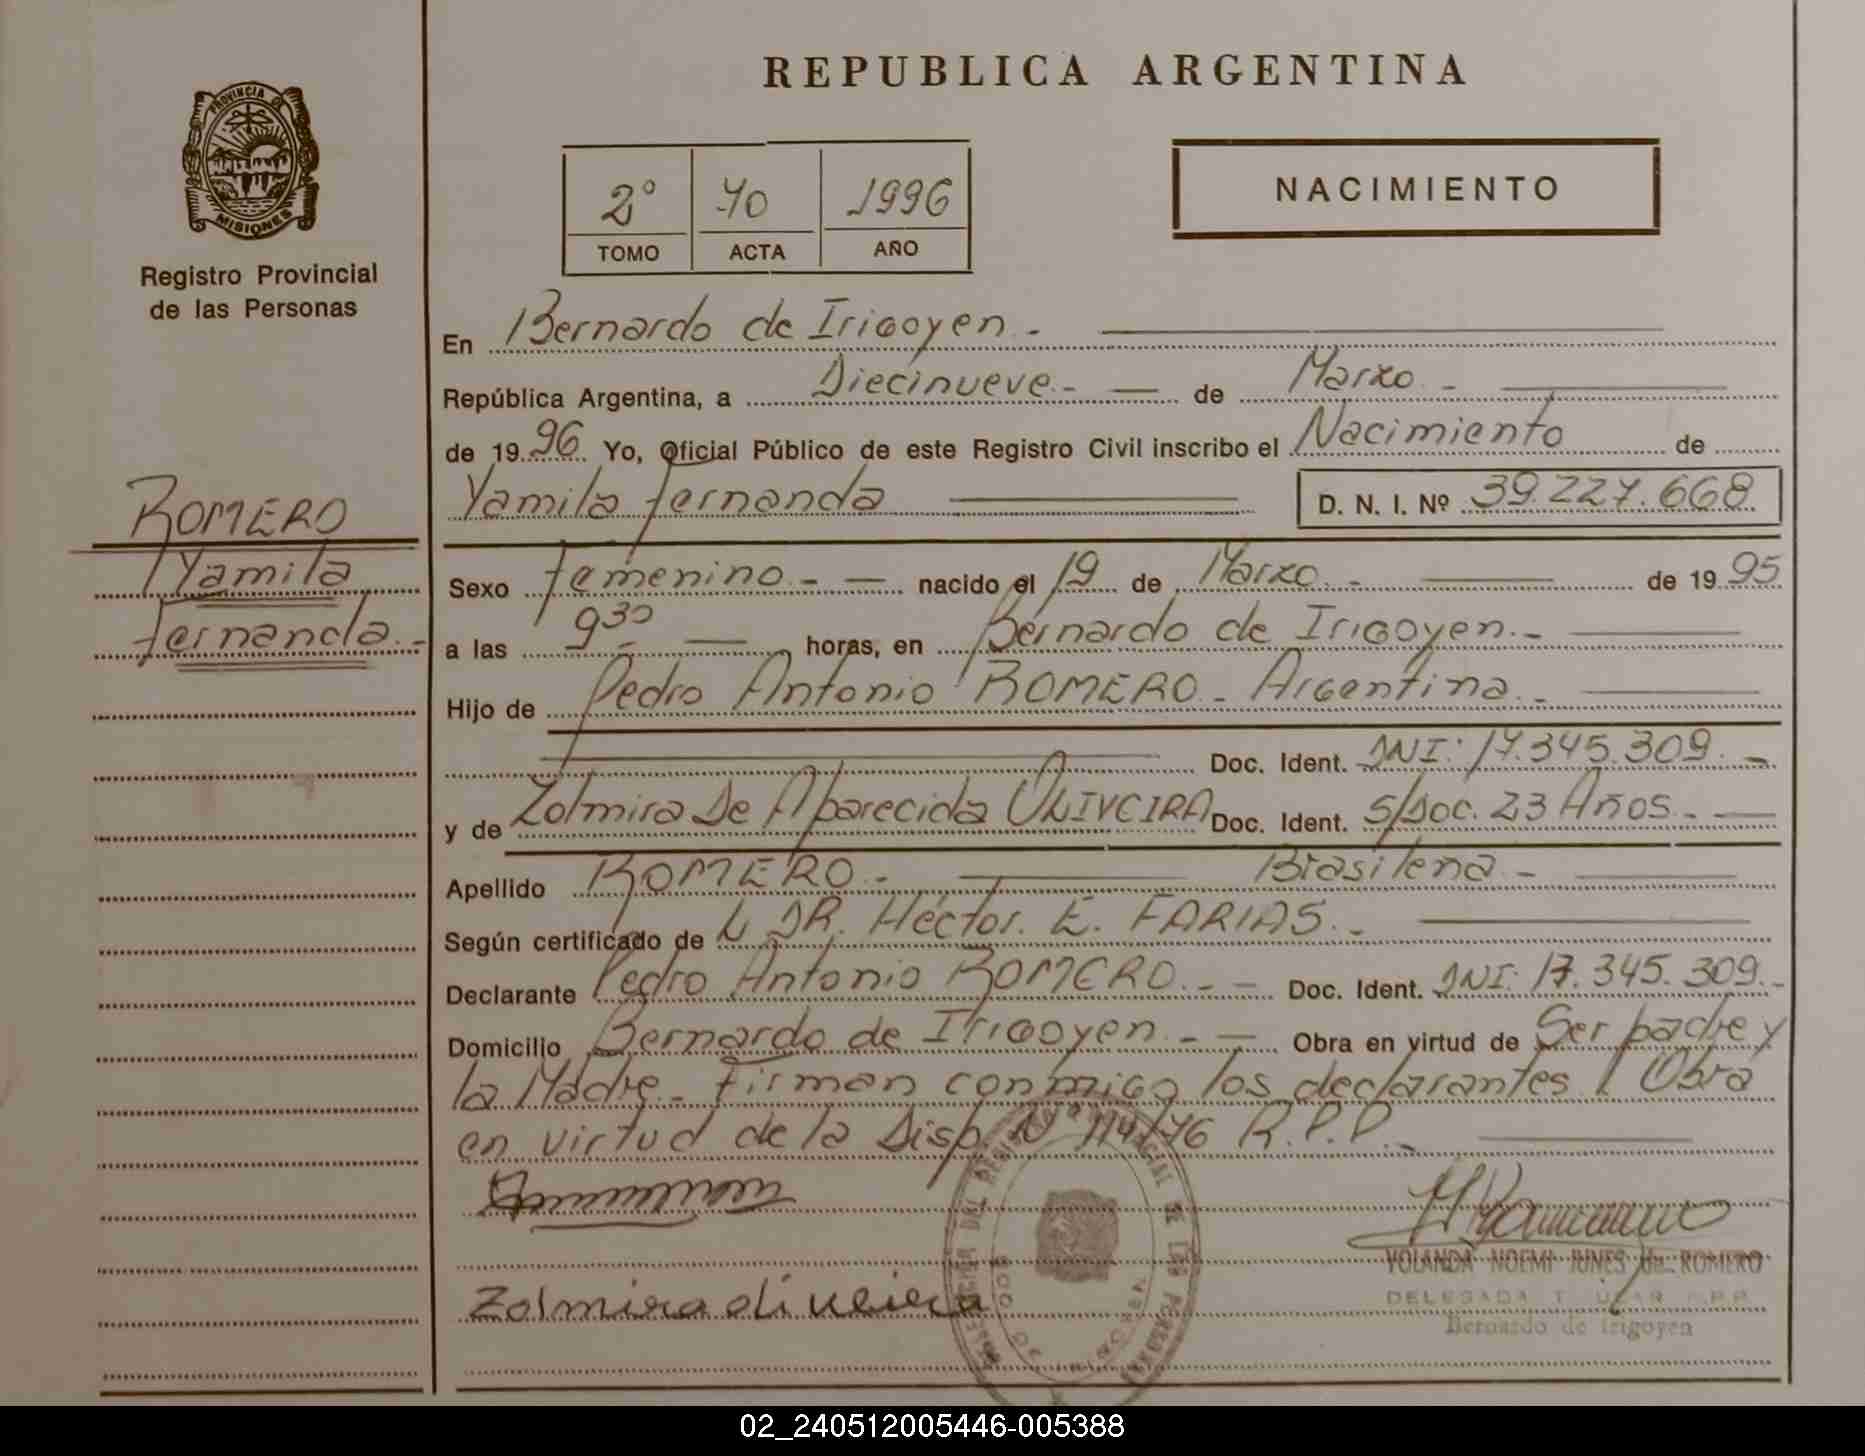 REPUBLICA ARGENTINA
PROVINCIA DE
MISIONES
Registro Provincial
de las Personas
2º 70 1996
TOMO ACTA AÑO
NACIMIENTO
ROMERO
Yamila
Fernanda.-
En Bernardo de Irigoyen.-
República Argentina, a Diecinueve.- de Marzo.-
de 1996 Yo, Oficial Público de este Registro Civil inscribo el Nacimiento de
Yamila Fernanda D. N. I. Nº 39.227.668
Sexo Femenino.- nacido el 19 de Marzo.- de 1995
a las 9 30 horas, en Bernardo de Irigoyen.-
Hijo de Pedro Antonio ROMERO.- Argentina.-
Doc. Ident. DNI: 17.345.309.-
y de Zolmira De Aparecida OLIVEIRA Doc. Ident. S/Doc. 23 Años.-
Apellido ROMERO.- Brasilena.-
Según certificado de DR. Héctor. E. FARIAS.-
Declarante Pedro Antonio ROMERO.- Doc. Ident. DNI: 17.345.309.-
Domicilio Bernardo de Irigoyen.- Obra en virtud de Ser padre y
la Madre.- Firman conmigo los declarantes / Obra
en virtud de la Disp. Nº 114/76 R.P.P.-
Zolmira oliveira
YOLANDA NOEMI JUNES de ROMERO
DELEGADA R.P.P.
Bernardo de Irigoyen
02_240512005446-005388